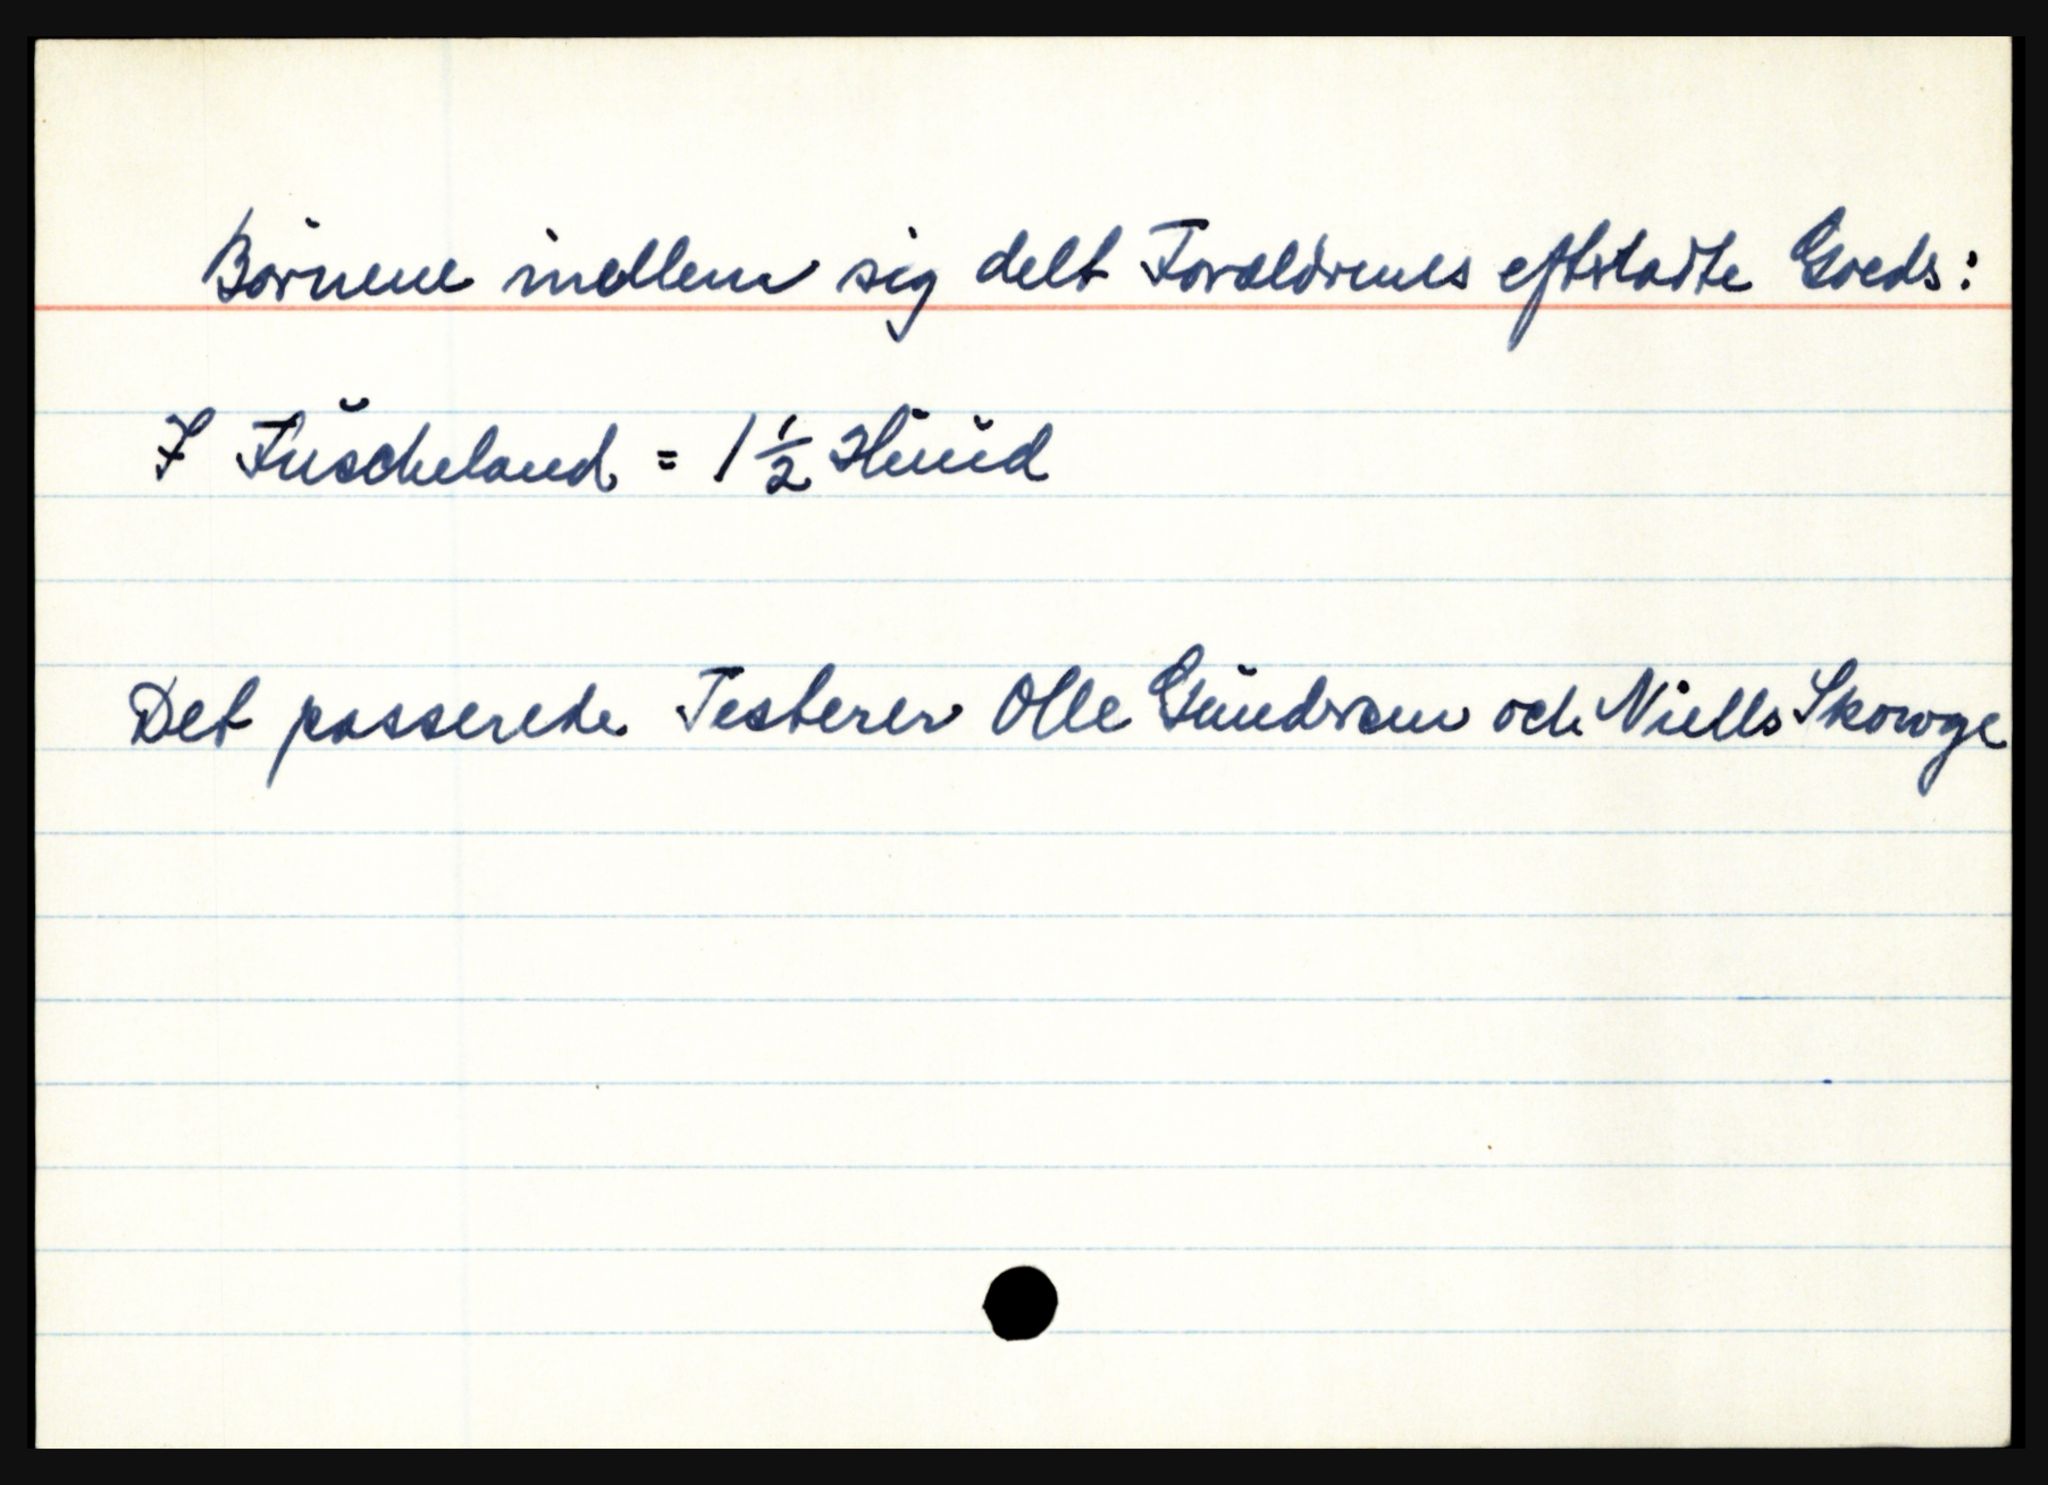 Börnene imellem sig delt Foreldrenes efterladte Goeds:
I Fuscheland = 1 1/2 Huud
Det passerede Testerer Olle Gundersen och Niells Skowge